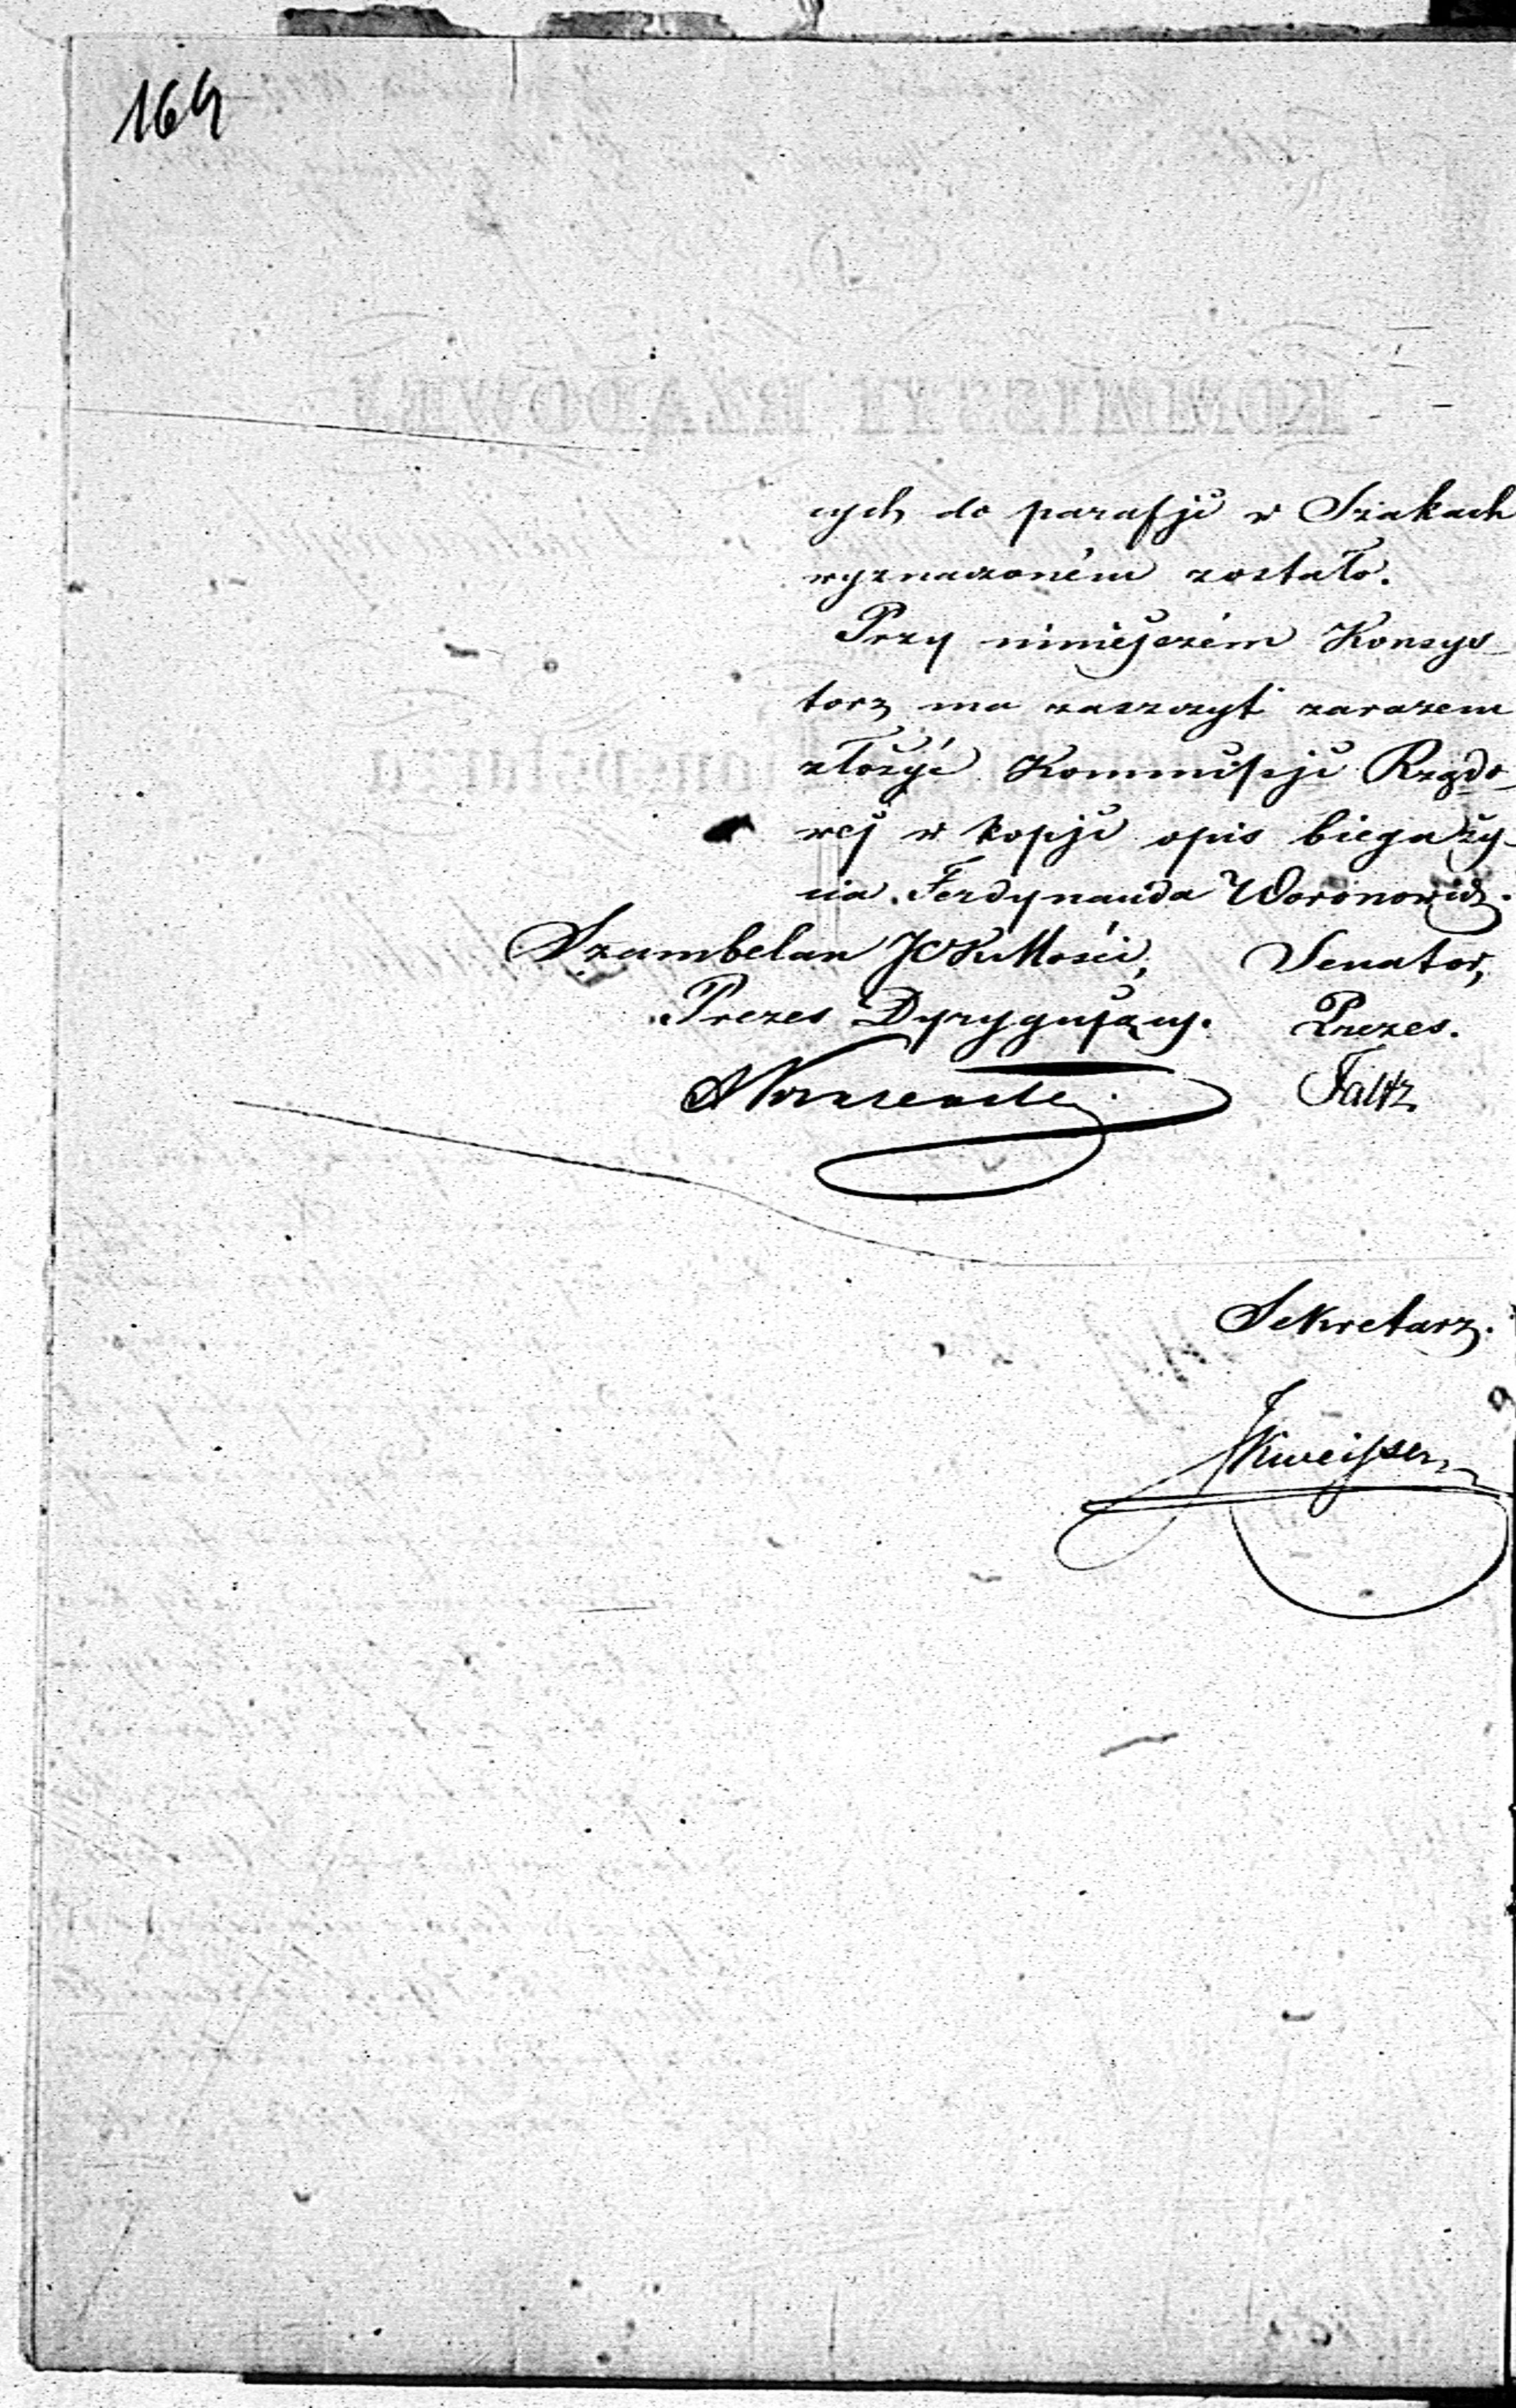 164
cych do parafji w Szakach
wyznaczoném zostało.
Przy niniejszém Konsys-
torz ma zaszczyt zarazem
złożyć Kommissji Rządo-
wej w kopji opis biegu ży-
cia Ferdynanda Woronowicz.
Szambelan JCKMości, Senator,
Prezes Dyrygujący. Prezes.
Faltz
Sekretarz.